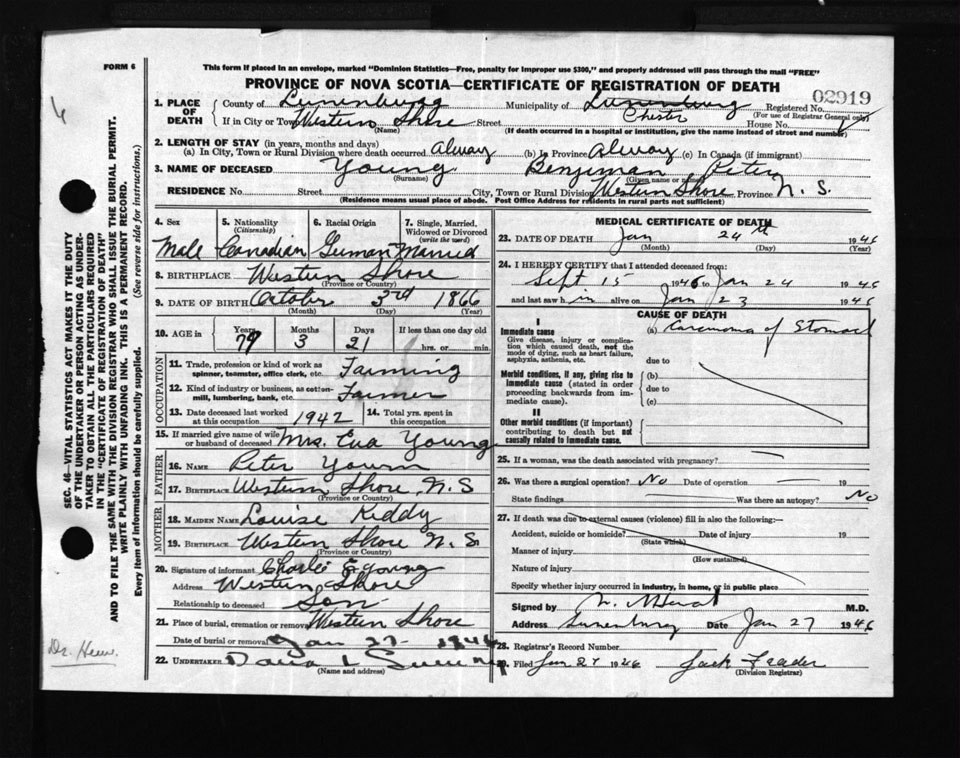 FORM 6
This form if placed in an envelope, marked "Dominion Statistics—Free, penalty for improper use $300," and properly addressed will pass through the mail "FREE"
PROVINCE OF NOVA SCOTIA—CERTIFICATE OF REGISTRATION OF DEATH
02919
1. PLACE OF DEATH
County of Lunenburg Municipality of Lunenburg Registered No.
Chester (For use of Registrar General only)
If in City or Town Western Shore Street House No.
(Name) (If death occurred in a hospital or institution, give the name instead of street and number)
2. LENGTH OF STAY (in years, months and days)
(a) In City, Town or Rural Division where death occurred Alway (b) In Province Alway (c) In Canada (if immigrant)
3. NAME OF DECEASED Young Benjiman Peter
(Surname) (Given name or names)
RESIDENCE No. Street City, Town or Rural Division Western Shore Province N. S.
(Residence means usual place of abode. Post Office Address for residents in rural parts not sufficient)
4. Sex 5. Nationality (Citizenship) 6. Racial Origin 7. Single, Married, Widowed or Divorced (write the word)
Male Canadian German Married
8. BIRTHPLACE Western Shore
(Province or Country)
9. DATE OF BIRTH October 3rd 1866
(Month) (Day) (Year)
10. AGE in Years Months Days If less than one day old
79 3 21 hrs. or min.
OCCUPATION
11. Trade, profession or kind of work as spinner, teamster, office clerk, etc. Farming
12. Kind of industry or business, as cotton-mill, lumbering, bank, etc. Farmer
13. Date deceased last worked at this occupation 1942 14. Total yrs. spent in this occupation
15. If married give name of wife or husband of deceased Mrs. Eva Young
FATHER
16. NAME Peter Youm
17. BIRTHPLACE Western Shore N.S
(Province or Country)
MOTHER
18. MAIDEN NAME Louise Keddy
19. BIRTHPLACE Western Shore N. S
(Province or Country)
20. Signature of informant Charlie E Young
Address Western Shore
Relationship to deceased Son
21. Place of burial, cremation or removal Western Shore
Date of burial or removal Jan 27 - 1946
22. UNDERTAKER
(Name and address)
MEDICAL CERTIFICATE OF DEATH
23. DATE OF DEATH Jan 24th 1946
(Month) (Day) (Year)
24. I HEREBY CERTIFY that I attended deceased from:
Sept 15 1946 to Jan 24 1946
and last saw h im alive on Jan 23 1946
CAUSE OF DEATH
I
Immediate cause (a) Carcinoma of Stomach
Give disease, injury or complication which caused death, not the mode of dying, such as heart failure, asphyxia, asthenia, etc.
due to
Morbid conditions, if any, giving rise to immediate cause (stated in order proceeding backwards from immediate cause).
(b)
due to
(c)
II
Other morbid conditions (if important) contributing to death but not causally related to immediate cause.
25. If a woman, was the death associated with pregnancy?
26. Was there a surgical operation? No Date of operation 19
State findings Was there an autopsy? No
27. If death was due to external causes (violence) fill in also the following:—
Accident, suicide or homicide? Date of injury 19
(State which)
Manner of injury
(How sustained)
Nature of injury
Specify whether injury occurred in industry, in home, or in public place
Signed by M.D.
Address Lunenburg Date Jan 27 1946
28. Registrar's Record Number
29. Filed Jan 27 1946 Jack
(Division Registrar)
SEC. 46—VITAL STATISTICS ACT MAKES IT THE DUTY
OF THE UNDERTAKER OR PERSON ACTING AS UNDER-
TAKER TO OBTAIN ALL THE PARTICULARS REQUIRED
IN THE "CERTIFICATE OF REGISTRATION OF DEATH"
AND TO FILE THE SAME WITH THE DIVISION REGISTRAR WHO SHALL ISSUE THE BURIAL PERMIT.
WRITE PLAINLY WITH UNFADING INK. THIS IS A PERMANENT RECORD.
Every item of information should be carefully supplied. (See reverse side for instructions.)